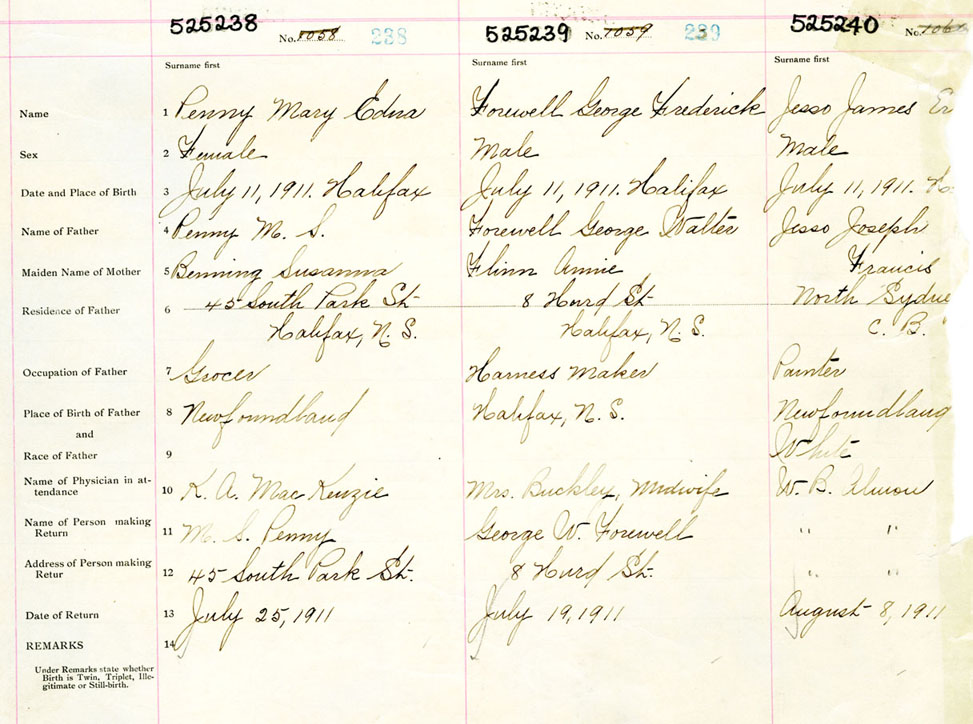 525238 No. 1058 238 525239 No. 1059 239 525240 No.
Surname first Surname first Surname first
Name 1 Penny Mary Edna Forewell George Frederick Jesso James Er
Sex 2 Female Male Male
Date and Place of Birth 3 July 11, 1911. Halifax July 11, 1911. Halifax July 11, 1911. Ha
Name of Father 4 Penny M. S. Forewell George Walter Jesso Joseph
Maiden Name of Mother 5 Benning Susanna Flinn Annie Francis
Residence of Father 6 45 South Park St 8 Hurd St North Sydne
Halifax, N. S. Halifax, N. S. C. B.
Occupation of Father 7 Grocer Harness Maker Painter
Place of Birth of Father 8 Newfoundland Halifax, N. S. Newfoundland
and
Race of Father 9 White
Name of Physician in at-
tendance 10 K. A. MacKenzie Mrs. Buckley, Midwife W. B. Almon
Name of Person making
Return 11 M. S. Penny George W. Forewell " "
Address of Person making
Retur 12 45 South Park St. 8 Hurd St. " "
Date of Return 13 July 25, 1911 July 19, 1911 August 8, 1911
REMARKS 14
Under Remarks state whether
Birth is Twin, Triplet, Ille-
gitimate or Still-birth.